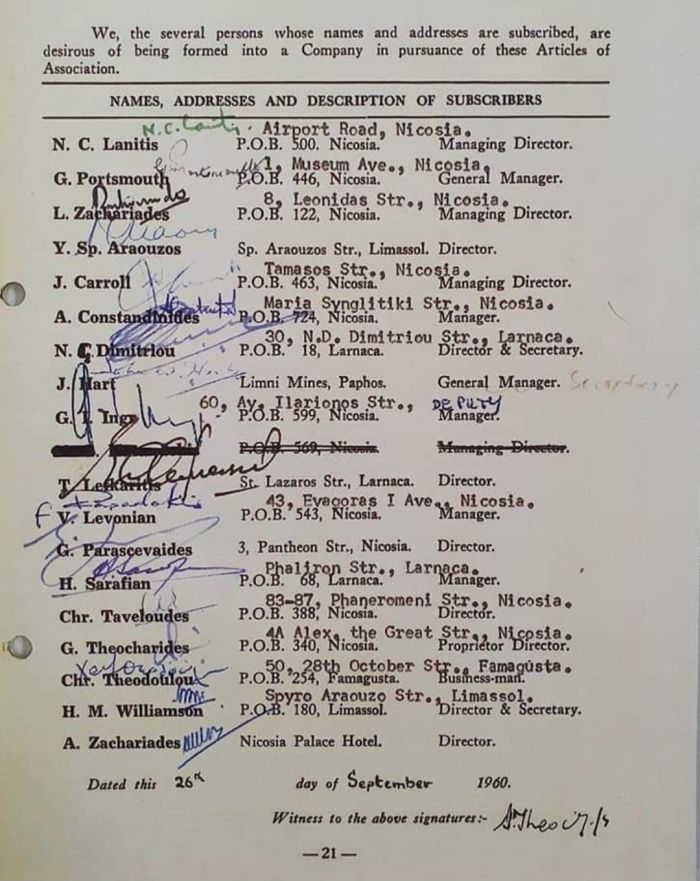 We, the several persons whose names and addresses are subscribed, are
desirous of being formed into a Company in pursuance of these Articles of
Association.
NAMES, ADDRESSES AND DESCRIPTION OF SUBSCRIBERS
N.C. Lanitis. Airport Road, Nicosia.
N. C. Lanitis P.O.B. 500. Nicosia. Managing Director.
1, Museum Ave., Nicosia.
G. Portsmouth P.O.B. 446, Nicosia. General Manager.
8, Leonidas Str., Nicosia.
L. Zachariades P.O.B. 122, Nicosia. Managing Director.
Y. Sp. Araouzos Sp. Araouzos Str., Limassol. Director.
Tamasos Str., Nicosia.
J. Carroll P.O.B. 463, Nicosia. Managing Director.
Maria Synglitiki Str., Nicosia.
A. Constandinides P.O.B. 724, Nicosia. Manager.
30, N.D. Dimitriou Str., Larnaca.
N. C. Dimitriou P.O.B. 18, Larnaca. Director & Secretary.
J. Hart Limni Mines, Paphos. General Manager. Secretary
60, Av. Ilarionos Str., DEPUTY
G. I. P.O.B. 599, Nicosia. Manager.
P.O.B. 569, Nicosia. Managing Director.
T. Lefkaritis St. Lazaros Str., Larnaca. Director.
43, Evagoras I Ave., Nicosia.
V. Levonian P.O.B. 543, Nicosia. Manager.
G. Parascevaides 3, Pantheon Str., Nicosia. Director.
Phaliron Str., Larnaca.
H. Sarafian P.O.B. 68, Larnaca. Manager.
83-87, Phaneromeni Str., Nicosia.
Chr. Taveloudes P.O.B. 388, Nicosia. Director.
4A Alex. the Great Str., Nicosia.
G. Theocharides P.O.B. 340, Nicosia. Proprietor Director.
50, 28th October Str., Famagusta.
Chr. Theodoulou P.O.B. 254, Famagusta. Business-man.
Spyro Araouzo Str., Limassol.
H. M. Williamson P.O.B. 180, Limassol. Director & Secretary.
A. Zachariades Nicosia Palace Hotel. Director.
Dated this 26th day of September 1960.
Witness to the above signatures:-
—21—